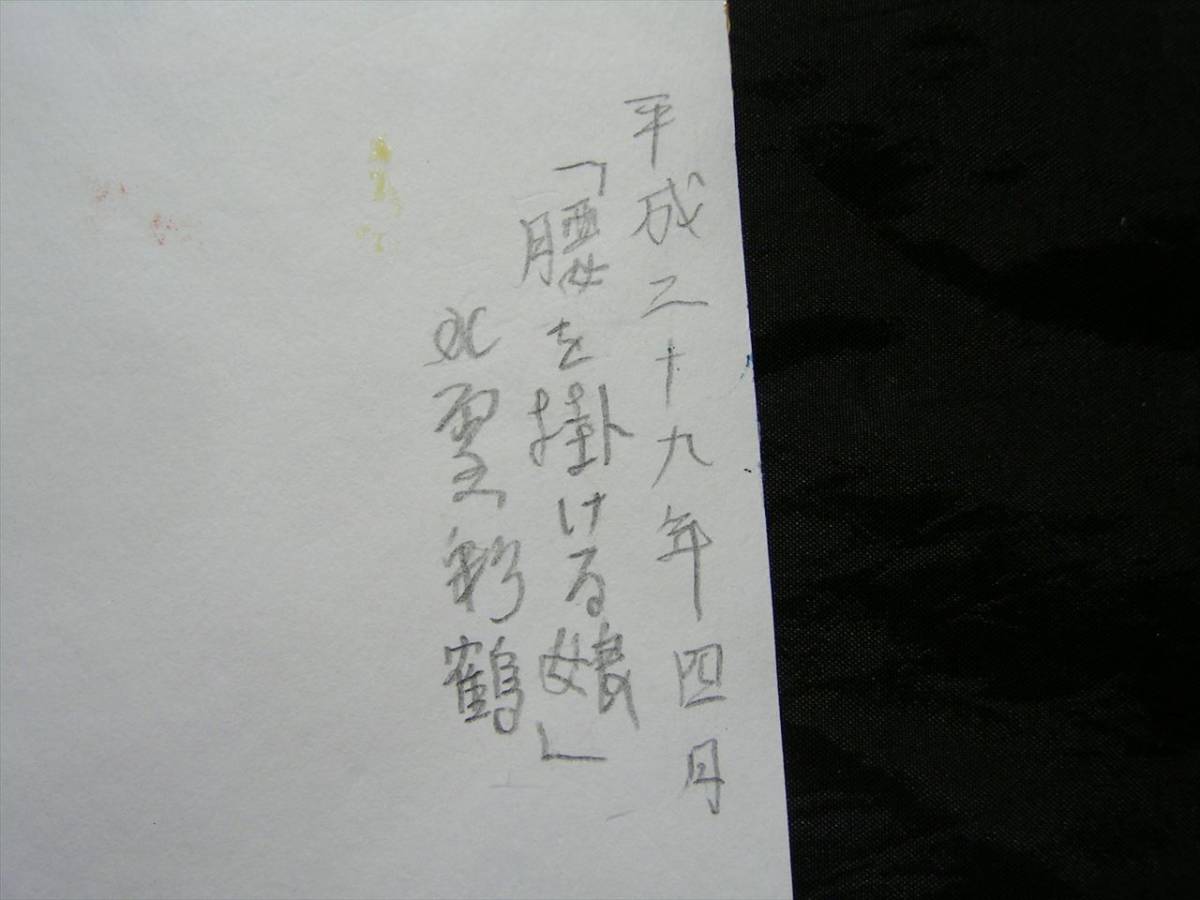 平成二十九年四月
「腰を掛ける娘」
彩鶴